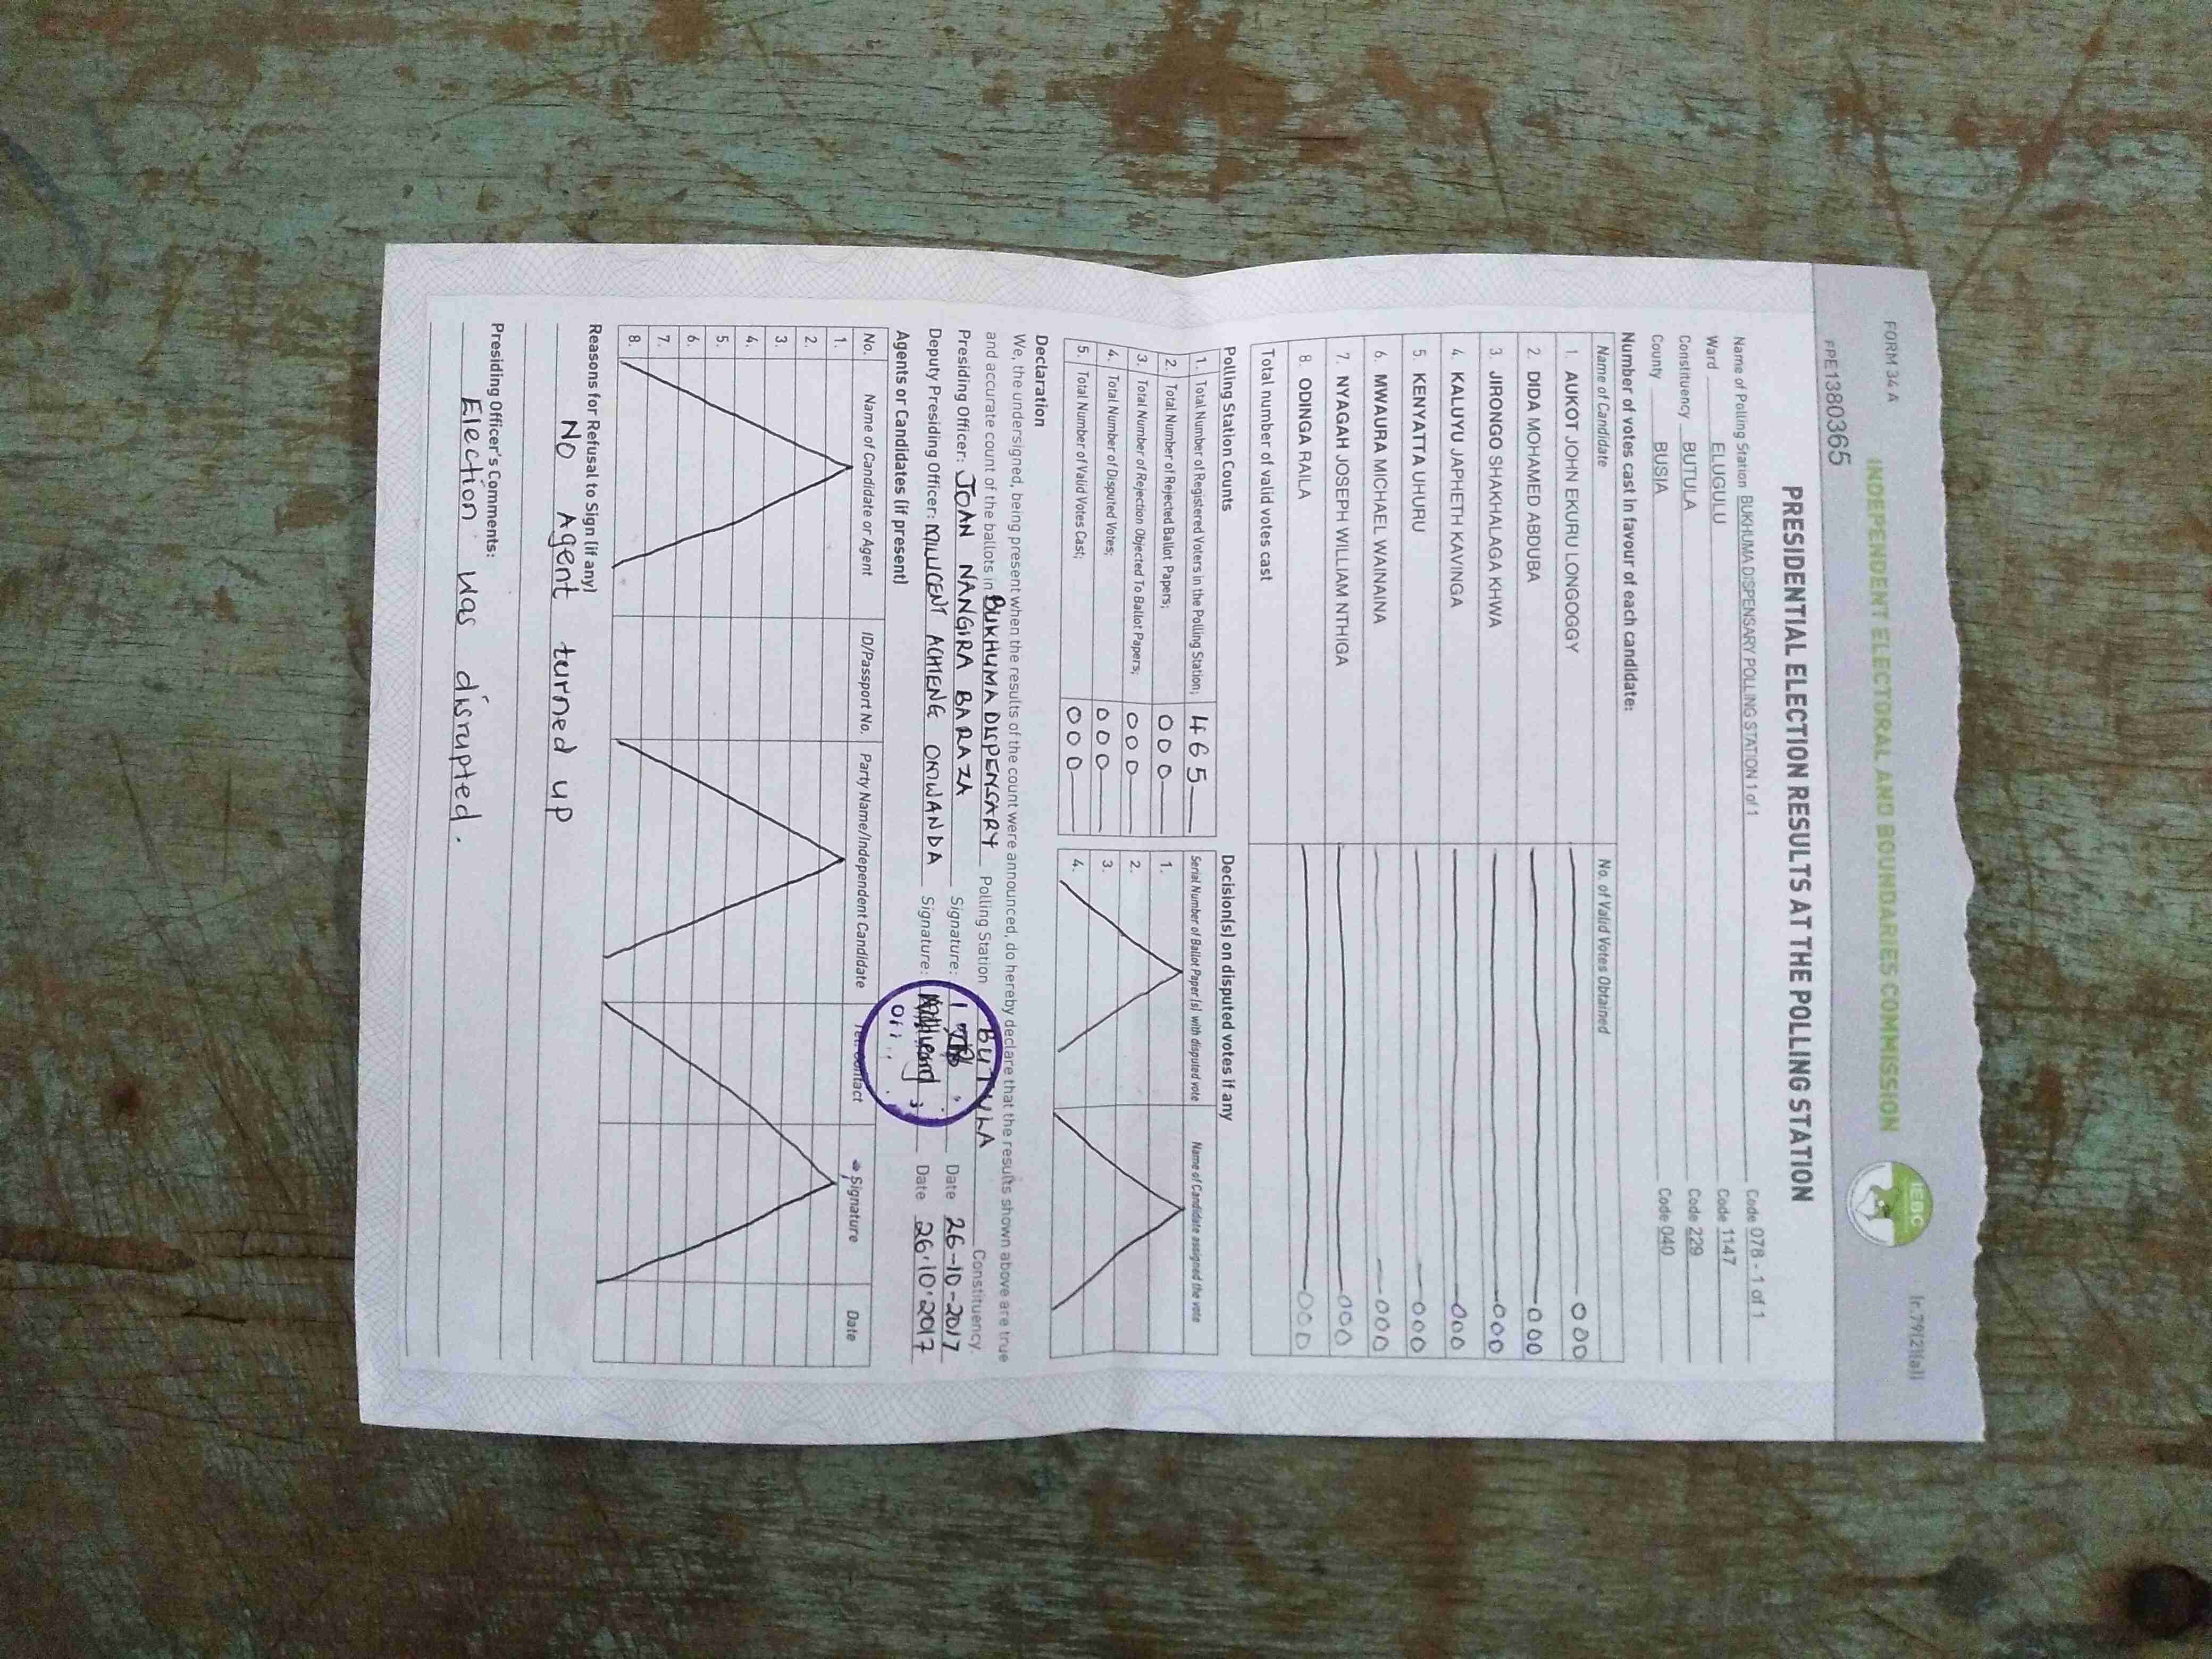 FORM 34 A
(r.79(2)(a))
INDEPENDENT ELECTORAL AND BOUNDARIES COMMISSION
IEBC
FPE1380365
PRESIDENTIAL ELECTION RESULTS AT THE POLLING STATION
Name of Polling Station BUKHUMA DISPENSARY POLLING STATION 1 of 1 Code 078 - 1 of 1
Ward ELUGULU Code 1147
Constituency BUTULA Code 229
County BUSIA Code 040
Number of votes cast in favour of each candidate:
Name of Candidate No. of Valid Votes Obtained
1. AUKOT JOHN EKURU LONGOGGY 000
2. DIDA MOHAMED ABDUBA 000
3. JIRONGO SHAKHALAGA KHWA 000
4. KALUYU JAPHETH KAVINGA 000
5. KENYATTA UHURU 000
6. MWAURA MICHAEL WAINAINA 000
7. NYAGAH JOSEPH WILLIAM NTHIGA 000
8. ODINGA RAILA 000
Total number of valid votes cast
Polling Station Counts
1. Total Number of Registered Voters in the Polling Station; 465
2. Total Number of Rejected Ballot Papers; 000
3. Total Number of Rejection Objected To Ballot Papers; 000
4. Total Number of Disputed Votes; 000
5. Total Number of Valid Votes Cast; 000
Decision(s) on disputed votes if any
Serial Number of Ballot Paper (s) with disputed vote Name of Candidate assigned the vote
1.
2.
3.
4.
Declaration
We, the undersigned, being present when the results of the count were announced, do hereby declare that the results shown above are true
and accurate count of the ballots in BUKHUMA DISPENSARY Polling Station BUTULA Constituency.
Presiding Officer: JOAN NANGIRA BARAZA Signature: Date 26-10-2017
Deputy Presiding Officer: MILLICENT ACHIENG OKWANDA Signature: Date 26.10.2017
Agents or Candidates (if present)
No. Name of Candidate or Agent ID/Passport No. Party Name/Independent Candidate Tel. Contact Signature Date
1.
2.
3.
4.
5.
6.
7.
8.
Reasons for Refusal to Sign (if any)
No Agent turned up
Presiding Officer's Comments:
Election was disrupted.